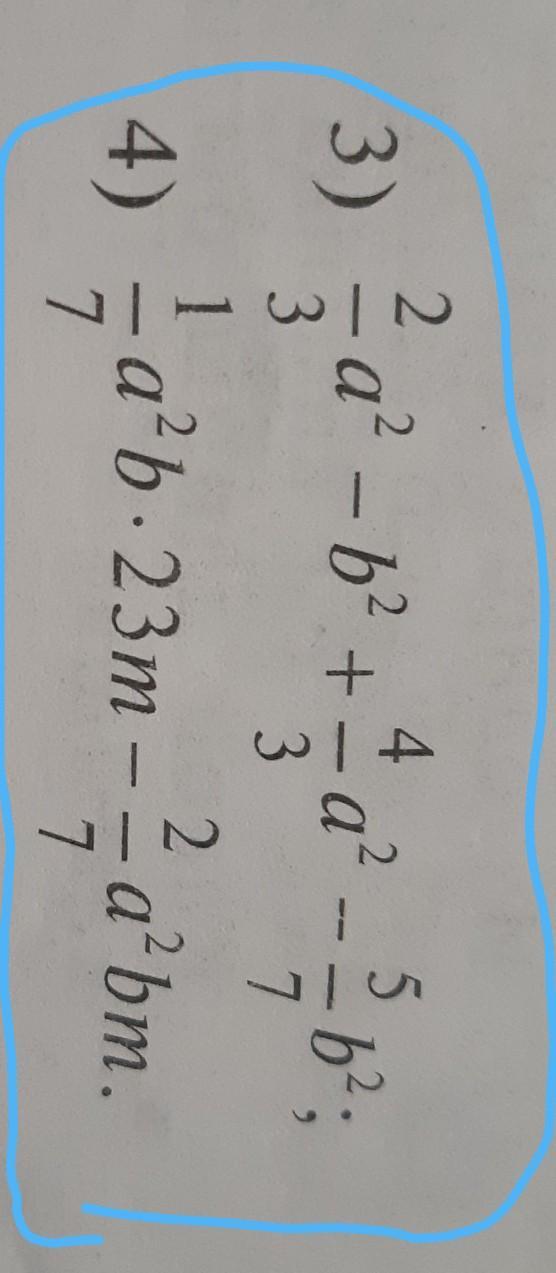 3) 2/3 a² − b² + 4/3 a² − 5/7 b²;
4) 1/7 a²b · 23m − 2/7 a²bm.